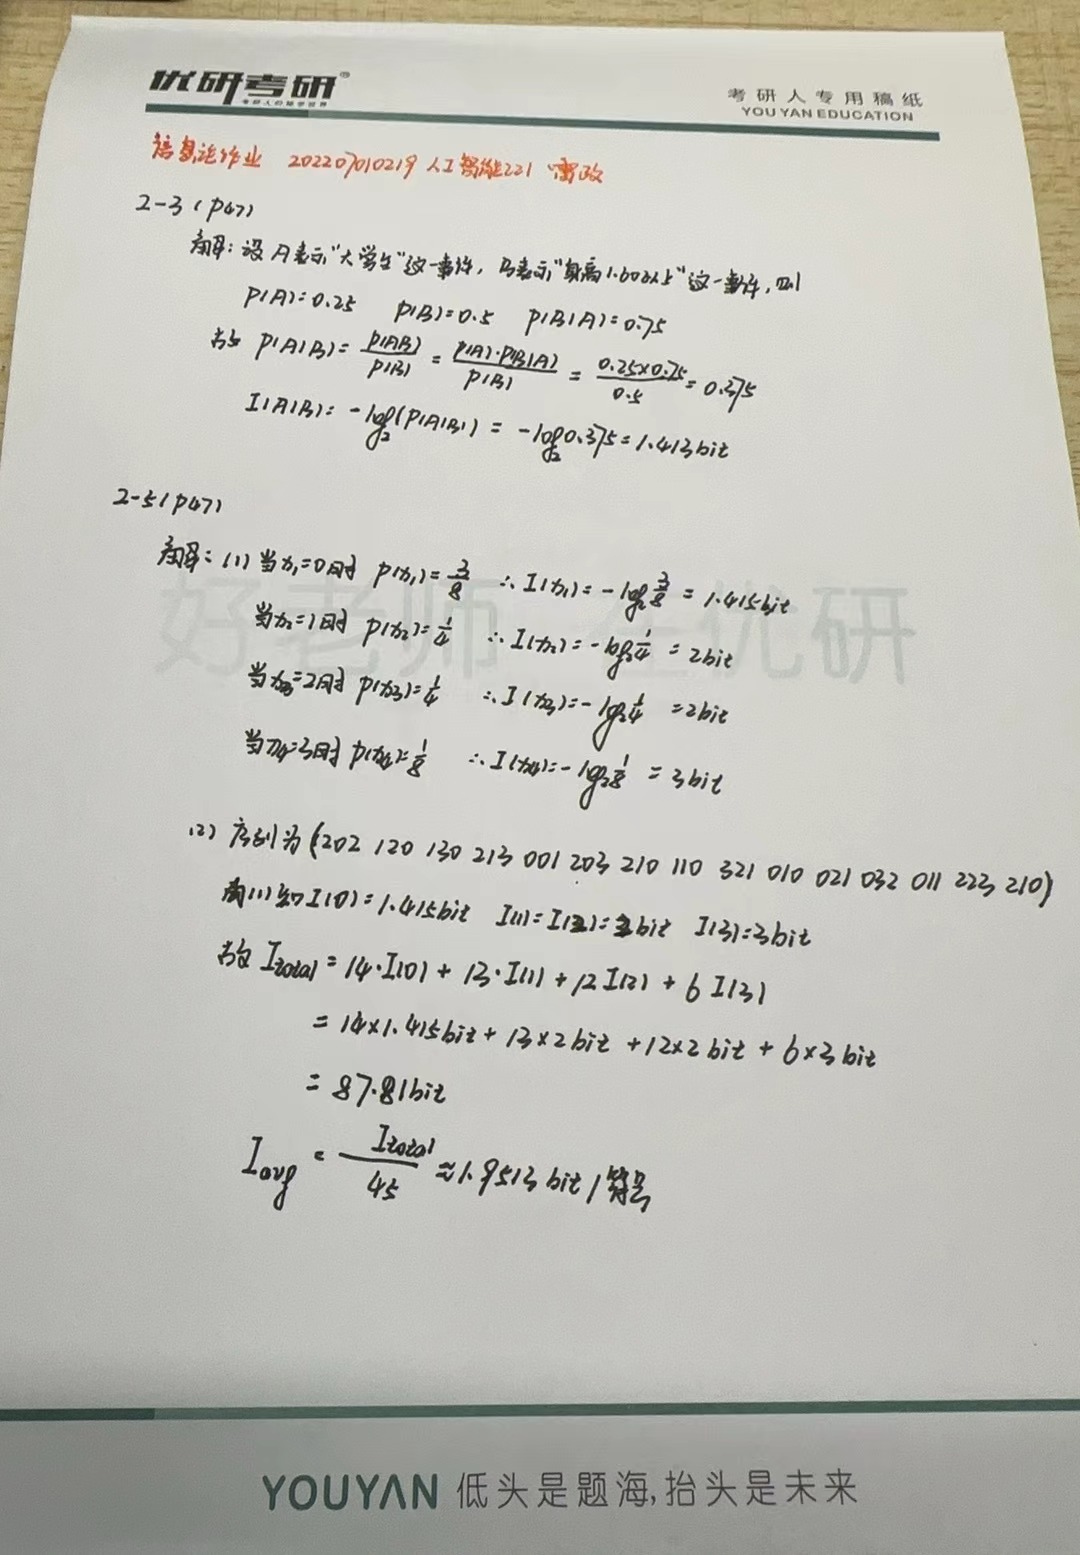 优研考研®
考研人专用稿纸
YOU YAN EDUCATION
信息论作业 202207010219 人工智能221 政
2-3(P47)
解：设A表示"大学生"这一事件，B表示"身高1.60以上"这一事件，则
P(A)=0.25 P(B)=0.5 P(B|A)=0.75
故 P(A|B)= P(AB)/P(B) = P(A)·P(B|A)/P(B) = 0.25×0.75/0.5 = 0.375
I(A|B)= -log₂(P(A|B)) = -log₂0.375=1.413bit
2-5(P47)
解：(1) 当x₁=0时 P(x₁)=3/8 ∴I(x₁)=-log₂3/8 = 1.415bit
当x₂=1时 P(x₂)=1/4 ∴I(x₂)=-log₂1/4 = 2bit
当x₃=2时 P(x₃)=1/4 ∴I(x₃)=-log₂1/4 =2bit
当x₄=3时 P(x₄)=1/8 ∴I(x₄)=-log₂1/8 = 3bit
好老师 在优研
(2) 序列为(202 120 130 213 001 203 210 110 321 010 021 032 011 223 210)
由(1)知I(0)=1.415bit I(1)=I(2)=2bit I(3)=3bit
故 Itotal = 14·I(0) + 13·I(1) + 12I(2) + 6I(3)
= 14×1.415bit + 13×2bit +12×2bit + 6×3bit
= 87.81bit
Iavg = Itotal/45 ≈1.9513 bit/符号
YOUYAN 低头是题海,抬头是未来